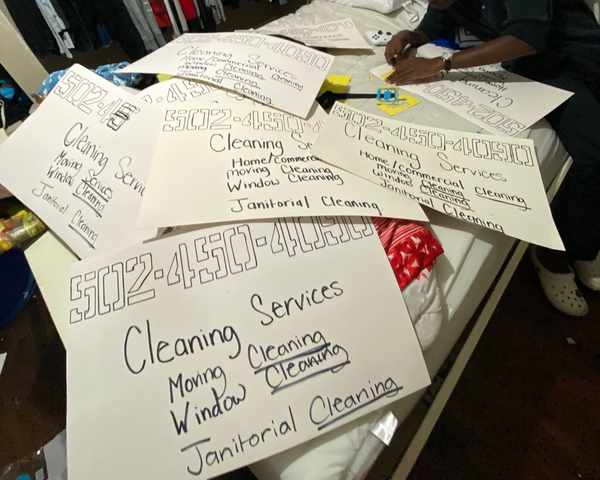 Cleaning Services
Home/Commercial Cleaning
Moving Cleaning
Window Cleaning
Janitorial Cleaning
502-45
Cleaning
Moving Services
Window Cleaning
Janitorial Cleaning
502-450-
Cleaning S
Home/Commercia
Moving Cleaning
Window Cleaning
Janitorial Cleaning
502-450-4090
Cleaning Services
Home/Commercial Cleaning
Moving Cleaning
Window Cleaning
Janitorial Cleaning
502-450-4090
Cleaning Services
Moving Cleaning
Window Cleaning
Janitorial Cleaning